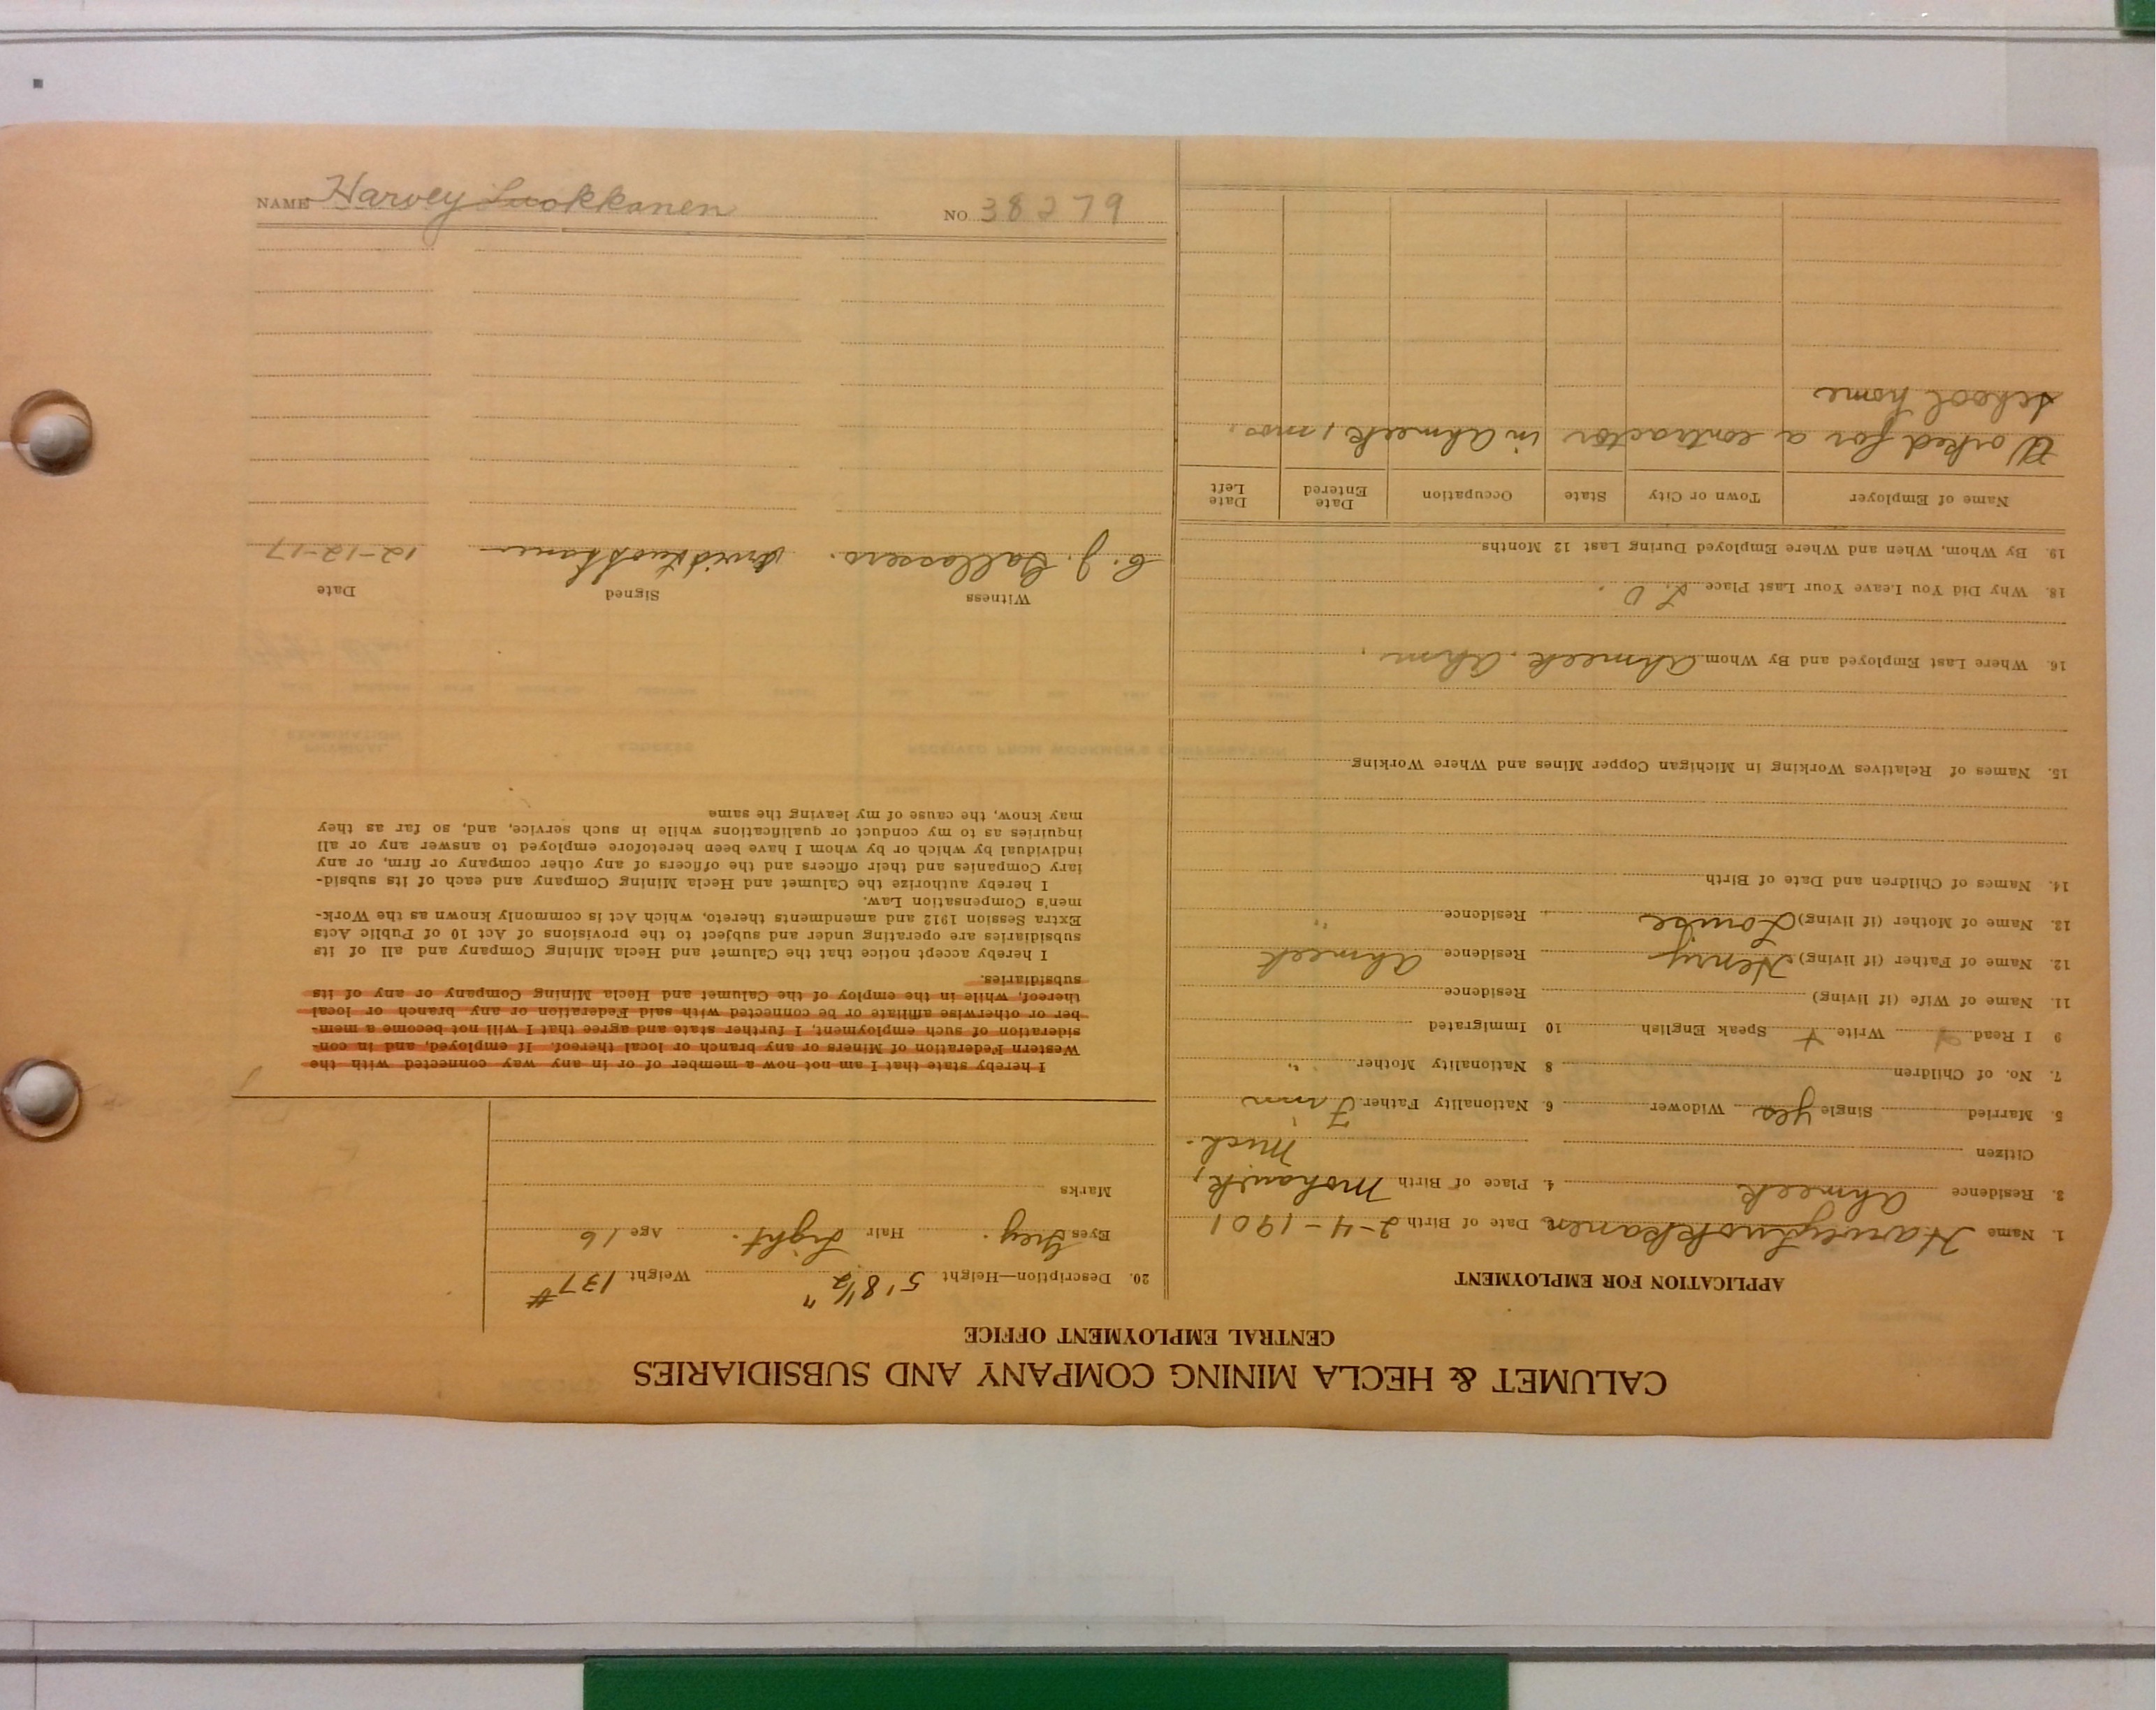 CALUMET & HECLA MINING COMPANY AND SUBSIDIARIES
CENTRAL EMPLOYMENT OFFICE
APPLICATION FOR EMPLOYMENT
1. Name Harvey Luokkanen Date of Birth 2-4-1901
3. Residence Ahmeek 4. Place of Birth Mohawk,
Citizen Mich.
5. Married Single yes Widower 6. Nationality Father Finn
7. No. of Children 8 Nationality Mother "
9 I Read Write Speak English 10 Immigrated
11. Name of Wife (if living) Residence
12. Name of Father (if living) Henry Residence Ahmeek
13. Name of Mother (if living) Louise Residence "
14. Names of Children and Date of Birth
15. Names of Relatives Working in Michigan Copper Mines and Where Working
16. Where Last Employed and By Whom Ahmeek Ahm.
18. Why Did You Leave Your Last Place L. O.
19. By Whom, When and Where Employed During Last 12 Months
Name of Employer Town or City State Occupation Date Entered Date Left
Worked for a contractor in Ahmeek, 1 mos.
School home
20. Description—Height 5' 8 1/2" Weight 137 #
Eyes Grey. Hair Light. Age 16
Marks
I hereby state that I am not now a member of or in any way connected with the
Western Federation of Miners or any branch or local thereof. If employed, and in con-
sideration of such employment, I further state and agree that I will not become a mem-
ber or otherwise affiliate or be connected with said Federation or any branch or local
thereof, while in the employ of the Calumet and Hecla Mining Company or any of its
subsidiaries.
I hereby accept notice that the Calumet and Hecla Mining Company and all of its
subsidiaries are operating under and subject to the provisions of Act 10 of Public Acts
Extra Session 1912 and amendments thereto, which Act is commonly known as the Work-
men's Compensation Law.
I hereby authorize the Calumet and Hecla Mining Company and each of its subsid-
iary Companies and their officers and the officers of any other company or firm, or any
individual by which or by whom I have been heretofore employed to answer any or all
inquiries as to my conduct or qualifications while in such service, and, so far as they
may know, the cause of my leaving the same
Witness Signed Date
12-12-17
NAME Harvey Luokkanen NO. 38279